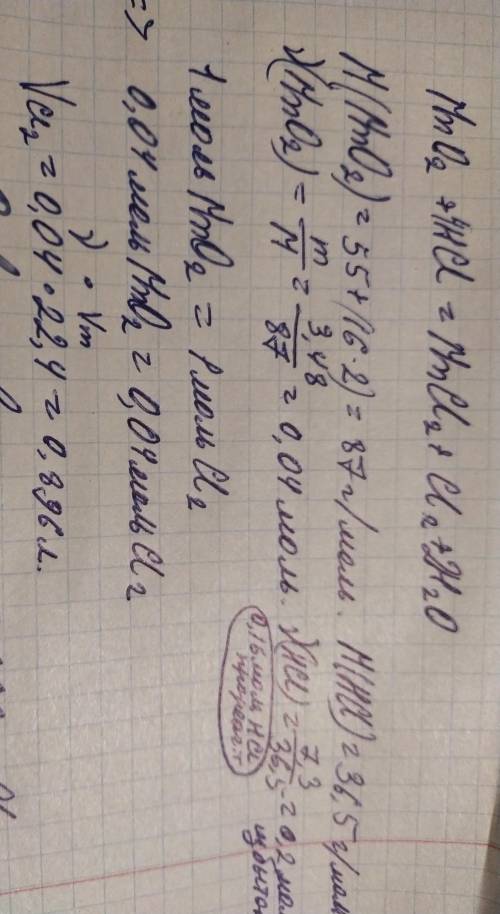 MnO₂ + 4HCl = MnCl₂ + Cl₂ + 2H₂O
M(MnO₂) = 55 + (16·2) = 87 г/моль. M(HCl) = 36,5 г/моль
ν(MnO₂) = m/M = 3,48/87 = 0,04 моль. ν(HCl) = 7,3/36,5 = 0,2 мол
избыток
0,16 моль HCl
прореаг.
1 моль MnO₂ = 1 моль Cl₂
=> 0,04 моль MnO₂ = 0,04 моль Cl₂
ν · Vm
Vcl₂ = 0,04 · 22,4 = 0,896 л.